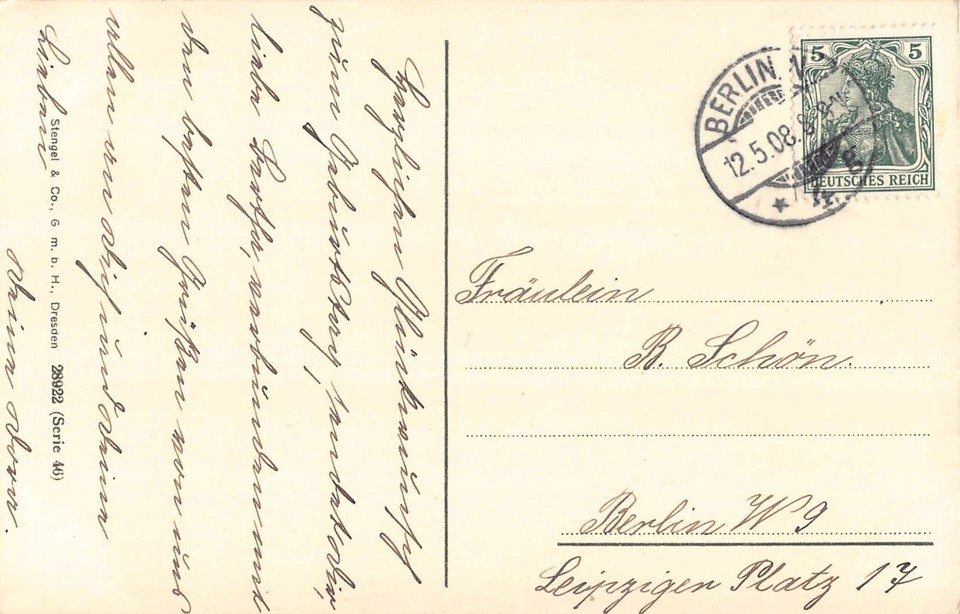 Herzlichen Glückwunsch
zum Geburtstag, sendet dir,
liebe Bertha, verbunden mit
den besten Grüßen von uns
allen an dich und deine
Lieben
deine Dora.
Stengel & Co., G. m. b. H., Dresden 28922 (Serie 46)
5 5
DEUTSCHES REICH
BERLIN
12.5.08.
Fräulein
B. Schön.
Berlin W 9
Leipziger Platz 17